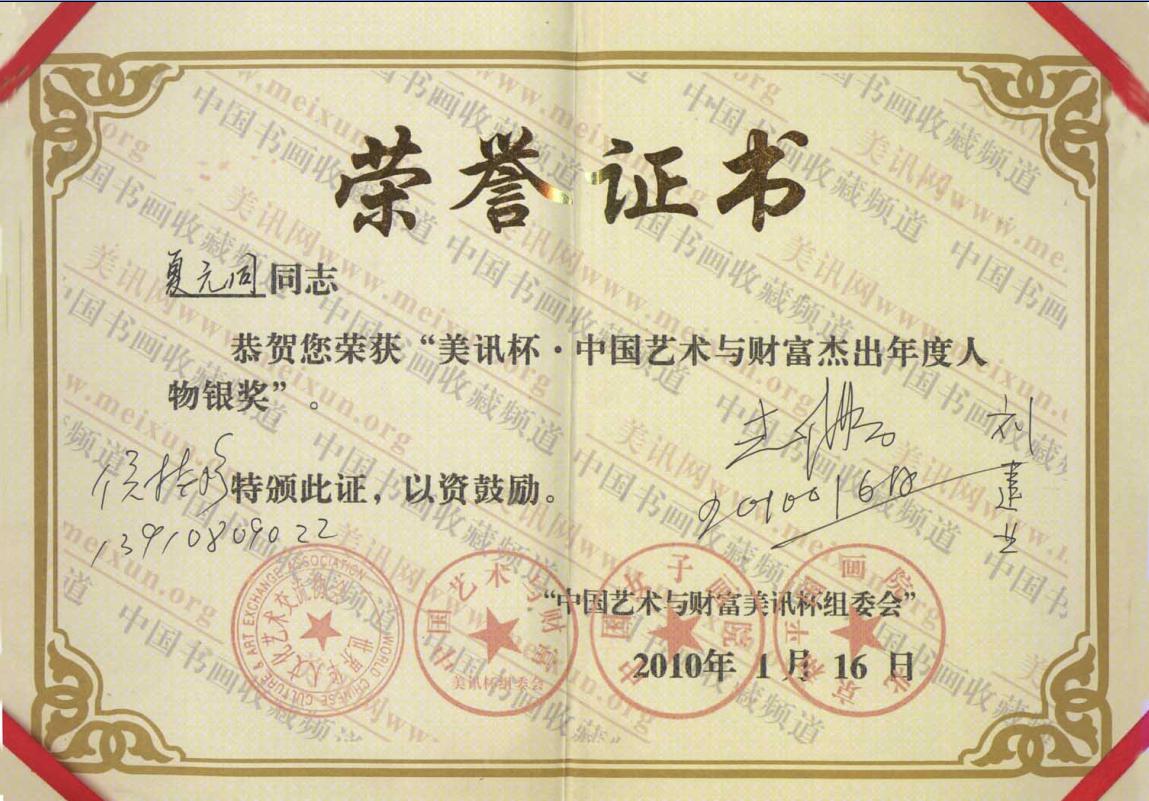 荣誉证书
夏元同同志
恭贺您荣获“美讯杯·中国艺术与财富杰出年度人
物银奖”。
特颁此证，以资鼓励。
13910809022
20100116
“中国艺术与财富美讯杯组委会”
2010年 1 月 16 日
世界华人文化艺术交流协会
WORLD CHINESE CULTURE & ART EXCHANGE ASSOCIATION
中国艺术与财富
美讯杯组委会
中国女子画院
北京和平画院
美讯网www.meixun.org
中国书画收藏频道